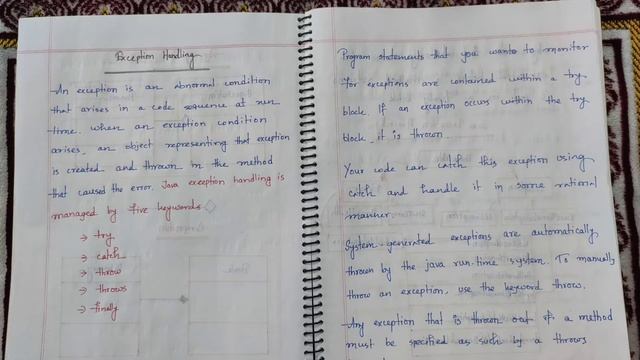 Exception Handling
An exception is an abnormal condition
that arises in a code sequence at run
time. when an exception condition
arises, an object representing that exception
is created and thrown in the method
that caused the error. Java exception handling is
managed by five keywords
→ try
→ catch
→ throw
→ throws
→ finally
Program statements that you wants to monitor
for exceptions are contained within a try
block. If an exception occurs within the try
block, it is thrown.
Your code can catch this exception using
catch and handle it in some rational
manner.
System-generated exceptions are automatically
thrown by the java run-time system. To manually
throw an exception, use the keyword throw.
Any exception that is thrown out of a method
must be specified as such by a throws